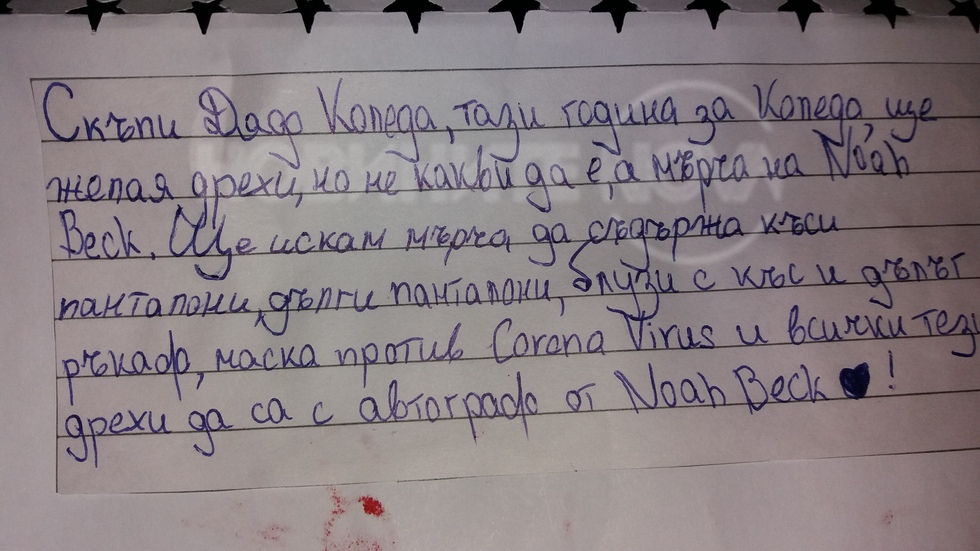 Скъпи Дядо Коледа, тази година за Коледа ще
желая дрехи, но не какви да е, а мърча на Noah
Beck. Ще искам мърча да съдържа къси
панталони, дълги панталони, блузи с къс и дълъг
ръкаф, маска против Corona Virus и всички тези
дрехи да са с автограф от Noah Beck ♥!